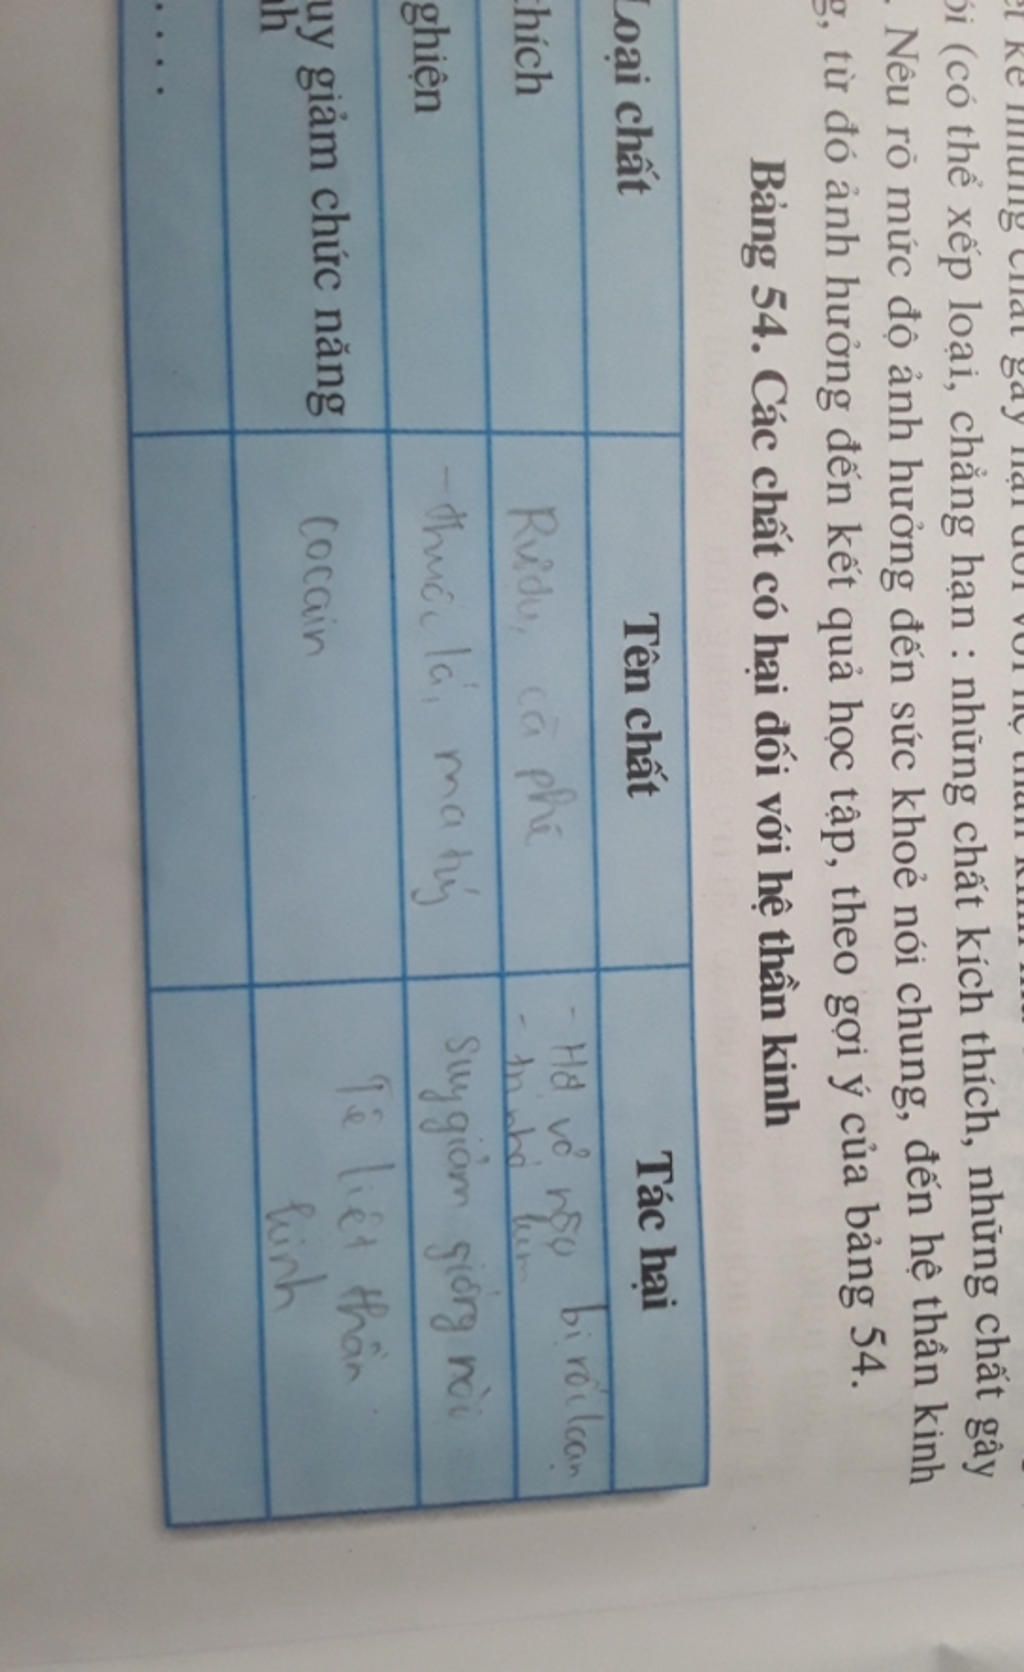 ói (có thể xếp loại, chẳng hạn : những chất kích thích, những chất gây
. Nêu rõ mức độ ảnh hưởng đến sức khoẻ nói chung, đến hệ thần kinh
g, từ đó ảnh hưởng đến kết quả học tập, theo gợi ý của bảng 54.
Bảng 54. Các chất có hại đối với hệ thần kinh
Loại chất Tên chất Tác hại
thích Rượu, cà phê - Hđ vỏ não bị rối loạn
- trí nhớ kém
ghiện - thuốc lá, ma túy suy giảm giống nòi
uy giảm chức năng cocain Tê liệt thần
nh kinh
....